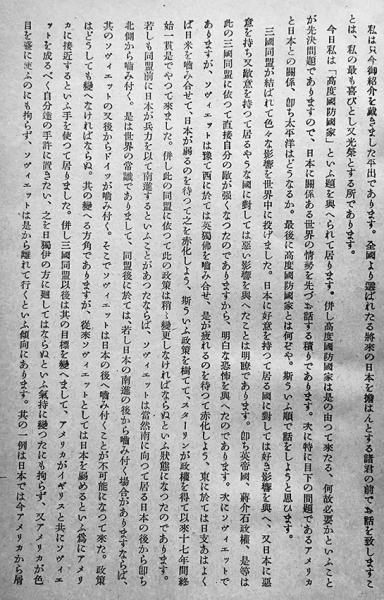 私は只今御紹介を戴きました平出であります。全國より選ばれたる將來の日本を擔はんとする諸君の前でお話を致しますこ
とは、私の最も喜びとし又光榮とする所であります。
今日私は「高度國防國家」といふ題を與へられて居ります。併し高度國防國家とは是の由つて來たる、何故必要かといふこと
が先決問題でありますので、日本に關係ある世界の情勢を先づお話する積りであります。次に特に目下の問題であるアメリカ
と日本との關係、卽ち太平洋はどうなるか。最後に高度國防國家とは何ぞや。斯ういふ順で話をしようと思ひます。
三國同盟が結ばれて色々な影響を世界中に投げました。日本に好意を持つて居る國に對しては好き影響を與へ、又日本に惡
意を持ち又敵意を持つて居るやうな國に對しては惡い影響を與へたことは明瞭であります。卽ち英帝國、蔣介石政權、是等は
此の三國同盟に依つて直接自分の敵が强くなつたのでありますから、明白な恐怖を與へたのであります。次にソヴィエットで
ありますが、ソヴィエットは豫て西に於ては英獨佛を嚙み合せ、是が疲れるのを待つて赤化しよう、東に於ては日支あはよく
ば日米を嚙み合せて、日本が弱るのを待つて之を赤化しよう、斯ういふ政策を樹てて、スターリンが政權を得て以來十七年間終
始一貫是でやつて來ました。併し此の同盟に依つて此の政策は稍々變更しなければならぬといふ狀態になつたのであります。
若しも同盟前に日本が兵力を以て南進するといふことがあつたならば、ソヴィエットは當然南に向つて居る日本の後から卽ち
北側から嚙み付く。是は世界の常識でありまして、同盟後に於ては、若し日本の南進の後から嚙み付く場合がありますならば、
其のソヴィエットの又後からドイツが嚙み付く。そこでソヴィエットは日本の後へ嚙み付くことが不可能になつて來た。政策
はどうしても變へなければならぬ。其の變へる方角でありますが、從來ソヴィエットとしては日本を弱めるといふ爲にアメリ
カに接近するといふ手を使つて居りました。併し三國同盟以後は其の目標を變へまして、アメリカがイギリスと共にソヴィエ
ットを成るべく自分達の手許に置きたい、之を日獨伊の方に廻してはならぬといふ氣持に變つたにも拘らず、又アメリカが色
目を盛に使ふのにも拘らず、ソヴィエットは是から離れて行くといふ傾向にあります。其の一例は日本では今アメリカから屑